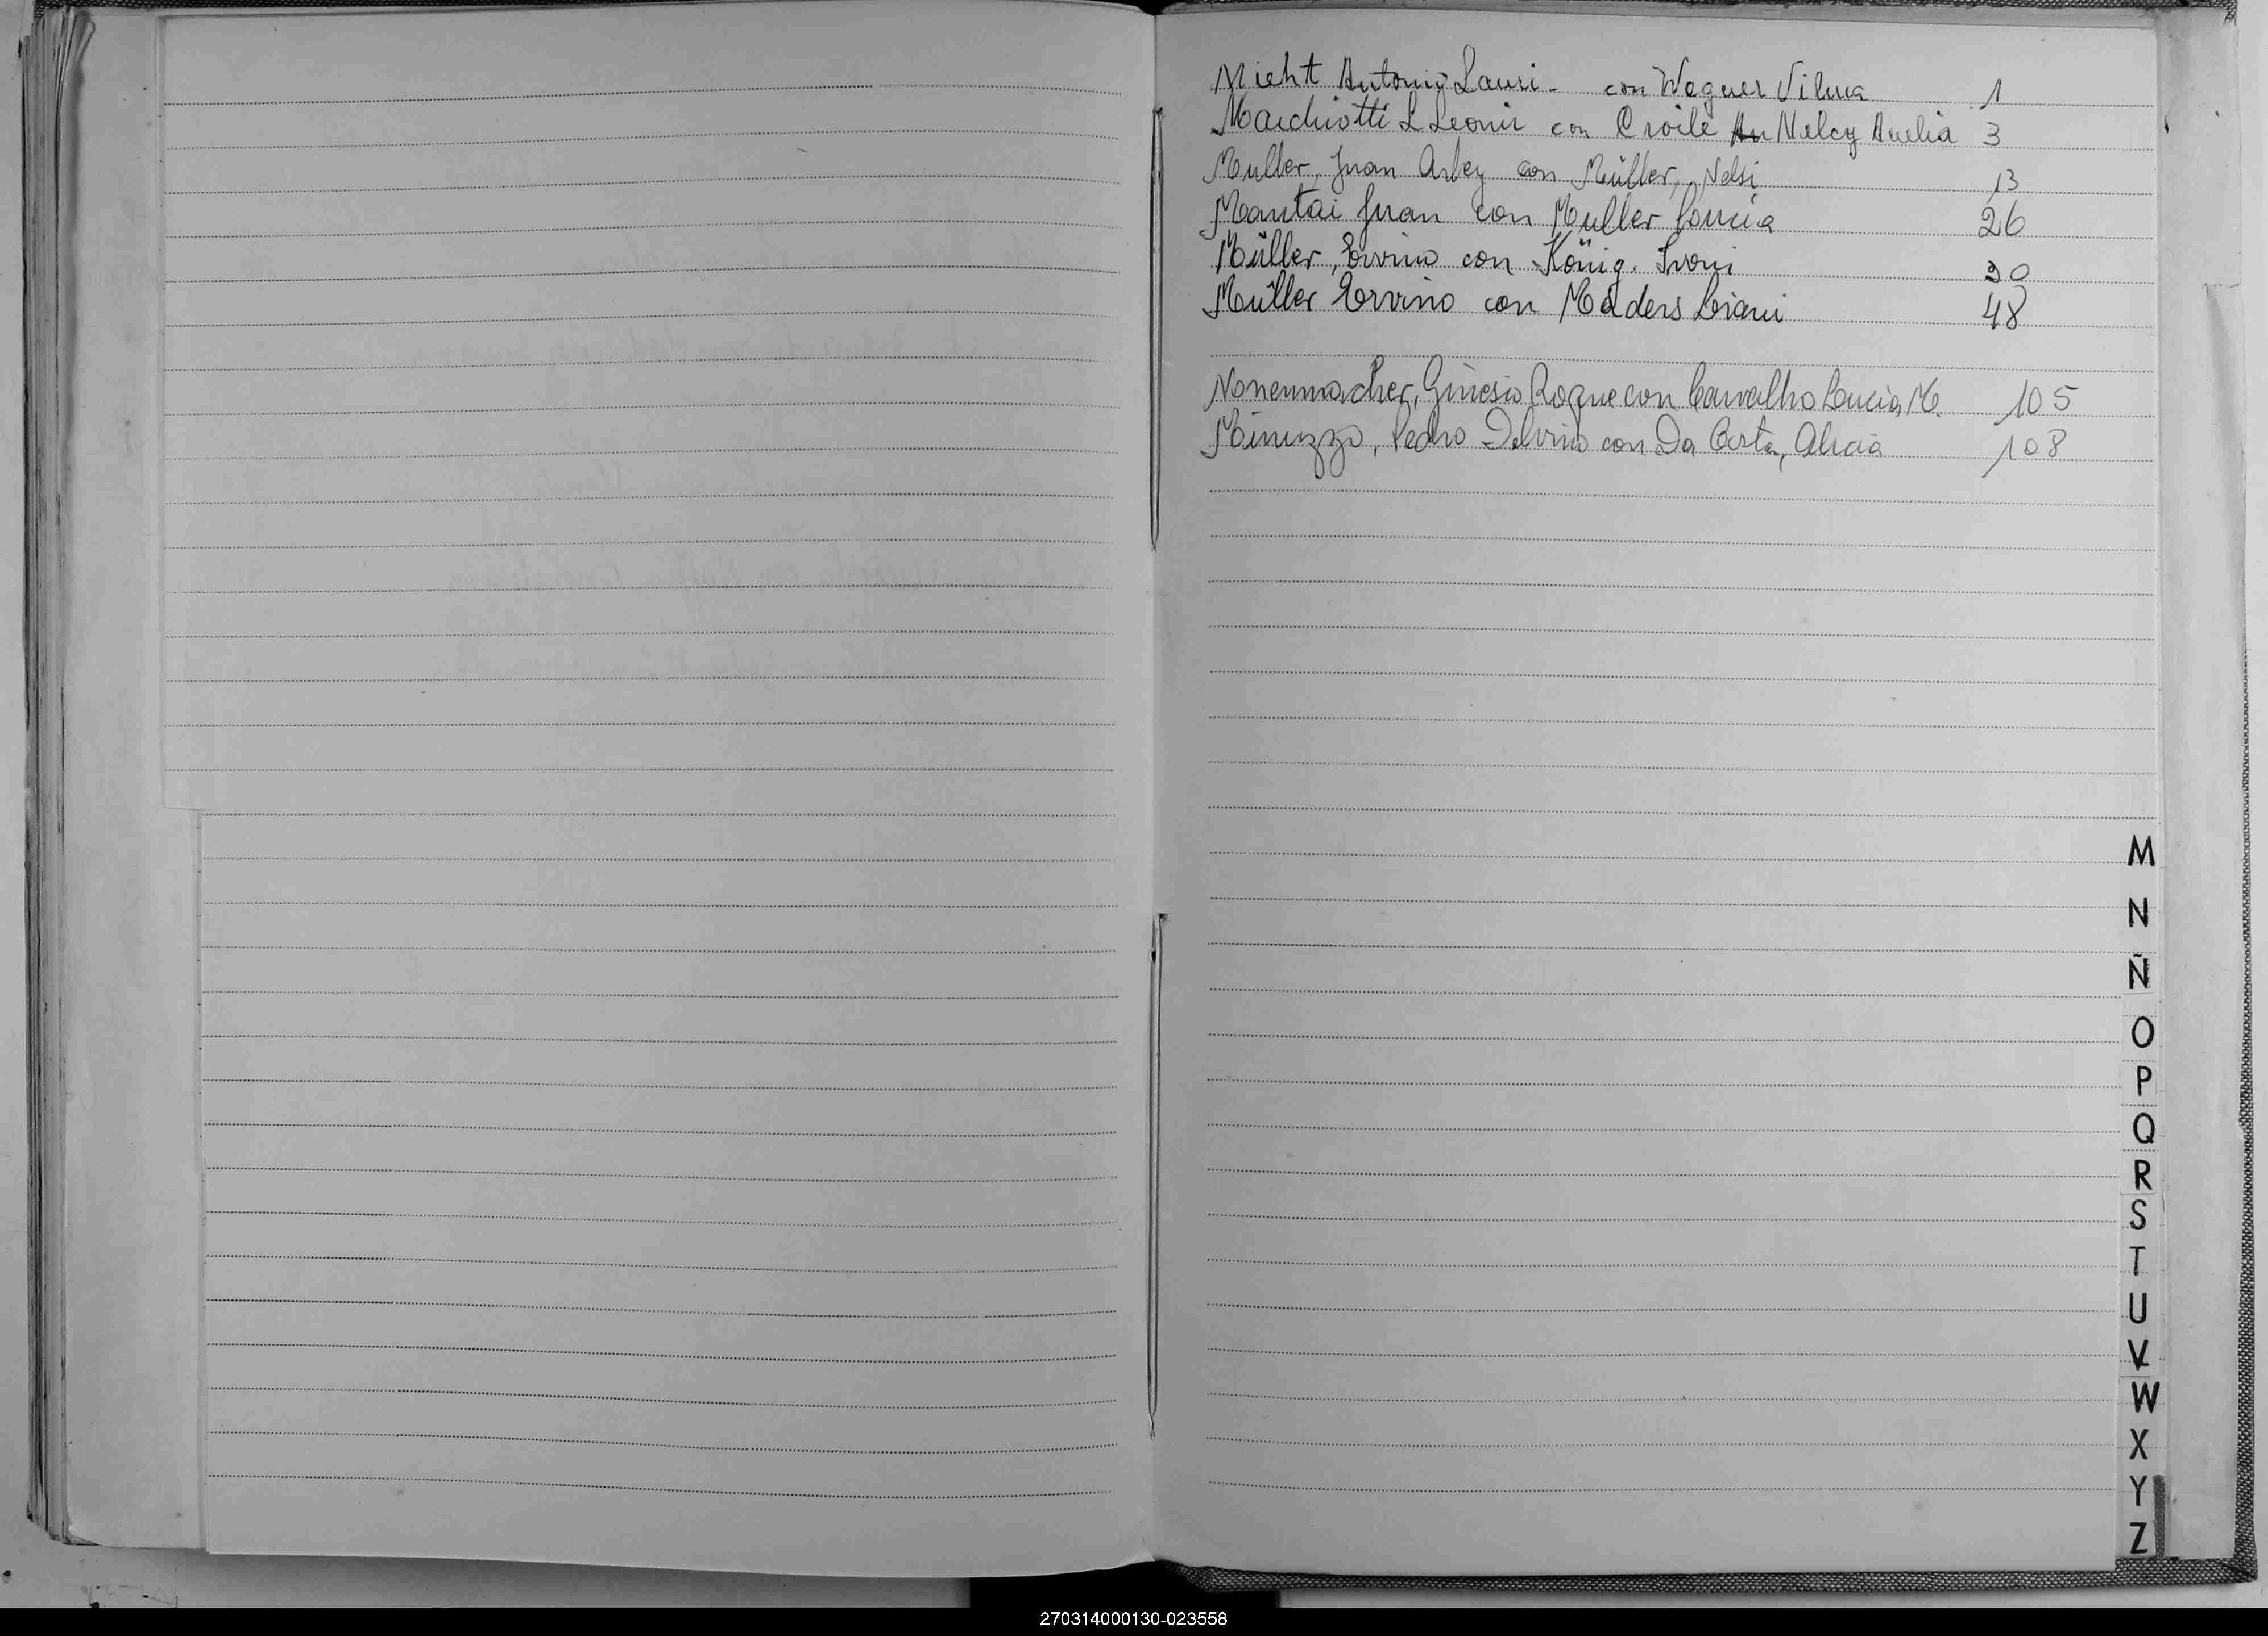 Mieht Antonio Lauri - con Wagner Vilma 1
Marchiotti L Leonir con Croile Nelcy Amelia 3
Muller, Juan Arley con Müller, Nelsi 13
Mantai Juan con Muller Loucia 26
Müller, Ervino con König. Ivoni 30
Muller Ervino con Maders Liani 48
Nonenmacher, Ginesio Roque con Carvalho Lucia M. 105
Minuzzo, Pedro Delvino con Da Costa, Alicia 108
M
N
Ñ
O
P
Q
R
S
T
U
V
W
X
Y
Z
270314000130-023558